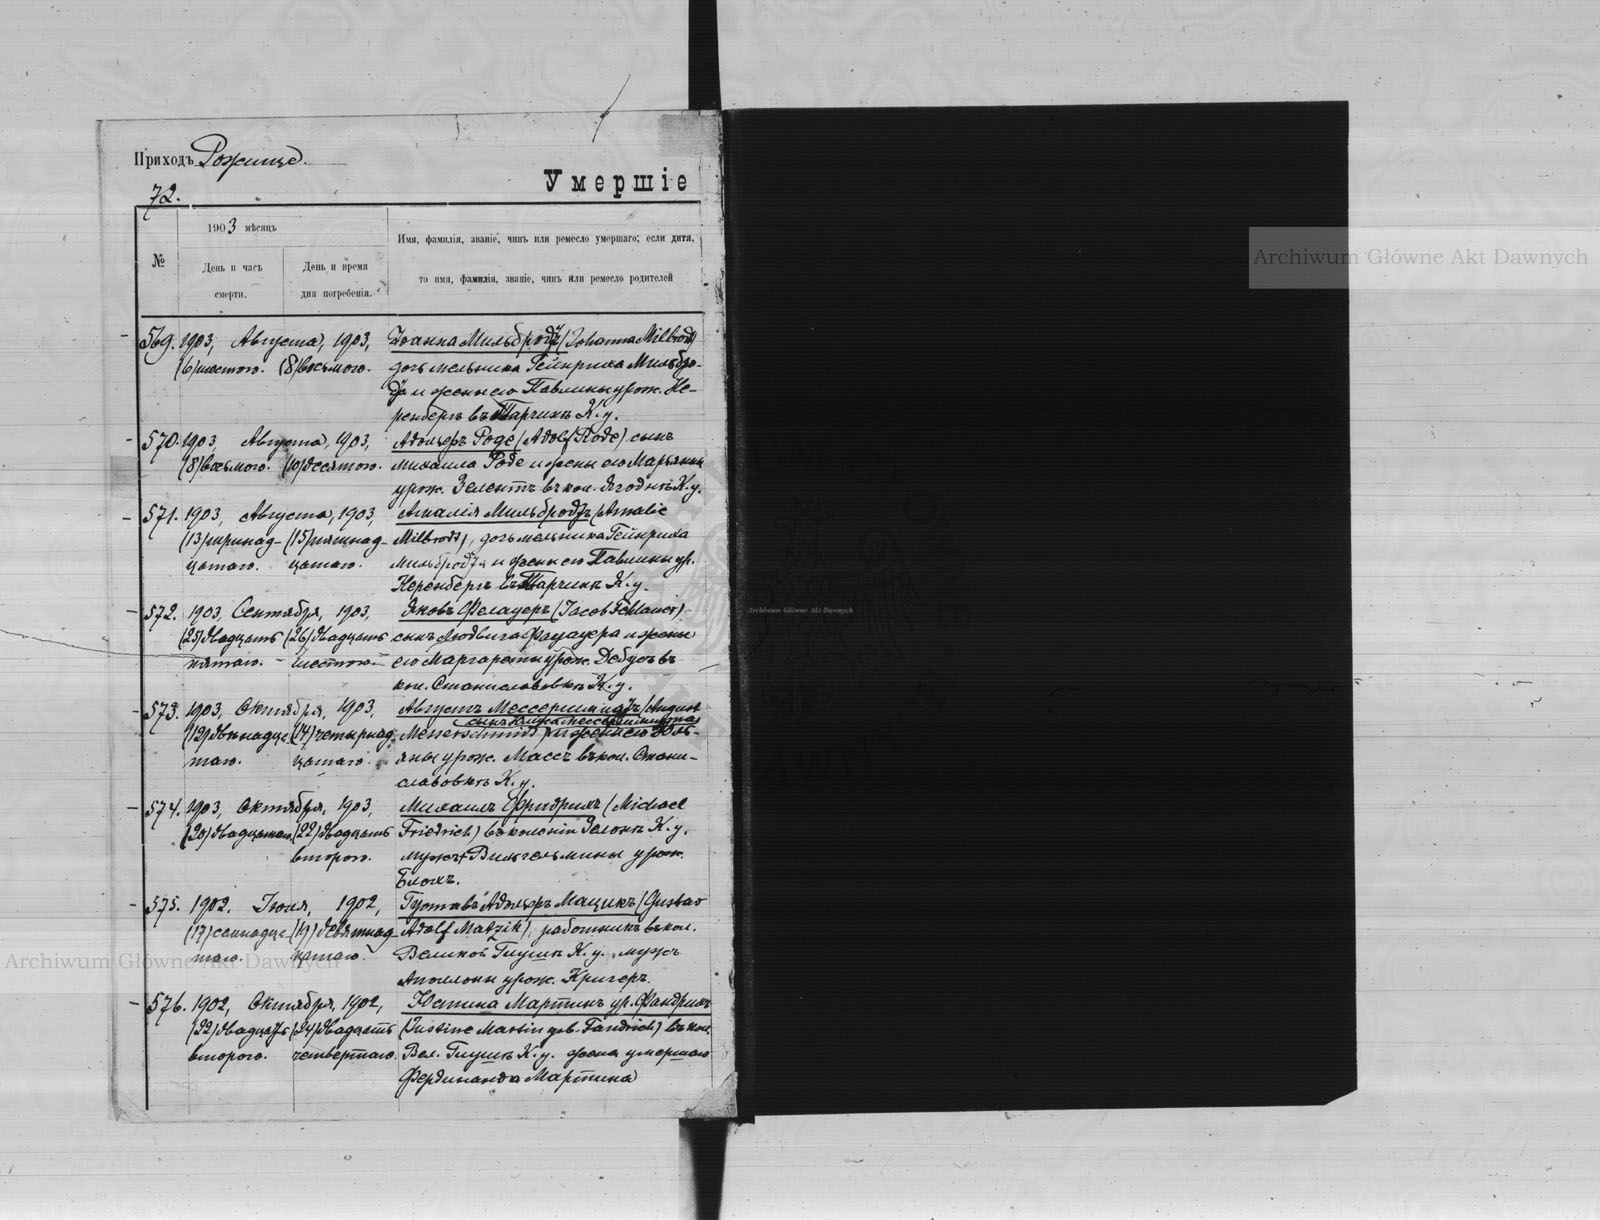 Приходъ Рожище.
72.
Умершіе
№
1903 мѣсяцъ
День и часъ
смерти.
День и время
дня погребенія.
Имя, фамилія, званіе, чинъ или ремесло умершаго; если дитя,
то имя, фамилія, званіе, чинъ или ремесло родителей
569. 1903, Августа, 1903, Іоанна Мильбродтъ (Johanna Milbrodt)
(6) шестого. (8) восьмого. дочь мельника Гейнриха Мильбро-
и жены его Павлины урож. Не-
ренбергъ въ К. у.
570. 1903, Августа, 1903, Адольфъ Роде (Adolf Rode), сынъ
(8) восьмого. (10) десятого. Михаила Роде и жены его Марьянны
урож. Зелентъ въ кол. Ягодне К. у.
571. 1903, Августа, 1903, Амалія Мильбродтъ (Amalie
(13) тринад- (15) пятнад- Milbrodt), дочь мельника Гейнриха
цатаго. цатаго. Мильбродта и жены его Павлины ур.
Неренбергъ въ К. у.
572. 1903, Сентября, 1903, Яковъ (Jacob
(25) двадцать (26) двадцать сынъ Людвига и жены
пятаго. шестого. его Маргареты урож. Дебусъ въ
кол. Станиславовкѣ К. у.
573. 1903, Октября, 1903, Августъ Мессершмидтъ (August
(12) двѣнадца- (14) четырнад- Messerschmidt) и жены его Юль-
таго. цатаго. яны урож. Массъ въ кол. Стани-
славовкѣ К. у.
574. 1903, Октября, 1903, Михаилъ Фридрихъ (Michael
(20) двадцатаго. (22) двадцать Friedrich) въ колоніи К. у.
второго. мужъ Вильгельмины урож.
Блохъ.
575. 1902. Іюля, 1902, Густавъ Адольфъ Мацикъ (Gustav
(17) семнадца- (19) девятнад- Adolf Matzik), работникъ въ кол.
таго. цатаго. Великой Глушѣ К. у. мужъ
Аполлоны урож. Кригеръ.
576. 1902, Октября, 1902, Юстина Мартинъ ур. Фандрихъ
(22) двадцать (24) двадцать (Justine Martin geb. Fandrich) въ кол.
второго. четвертаго. Вел. Глушѣ К. у. жена умершаго
Фердинанда Мартина
Archiwum Główne Akt Dawnych
Archiwum Główne Akt Dawnych
Archiwum Główne Akt Dawnych